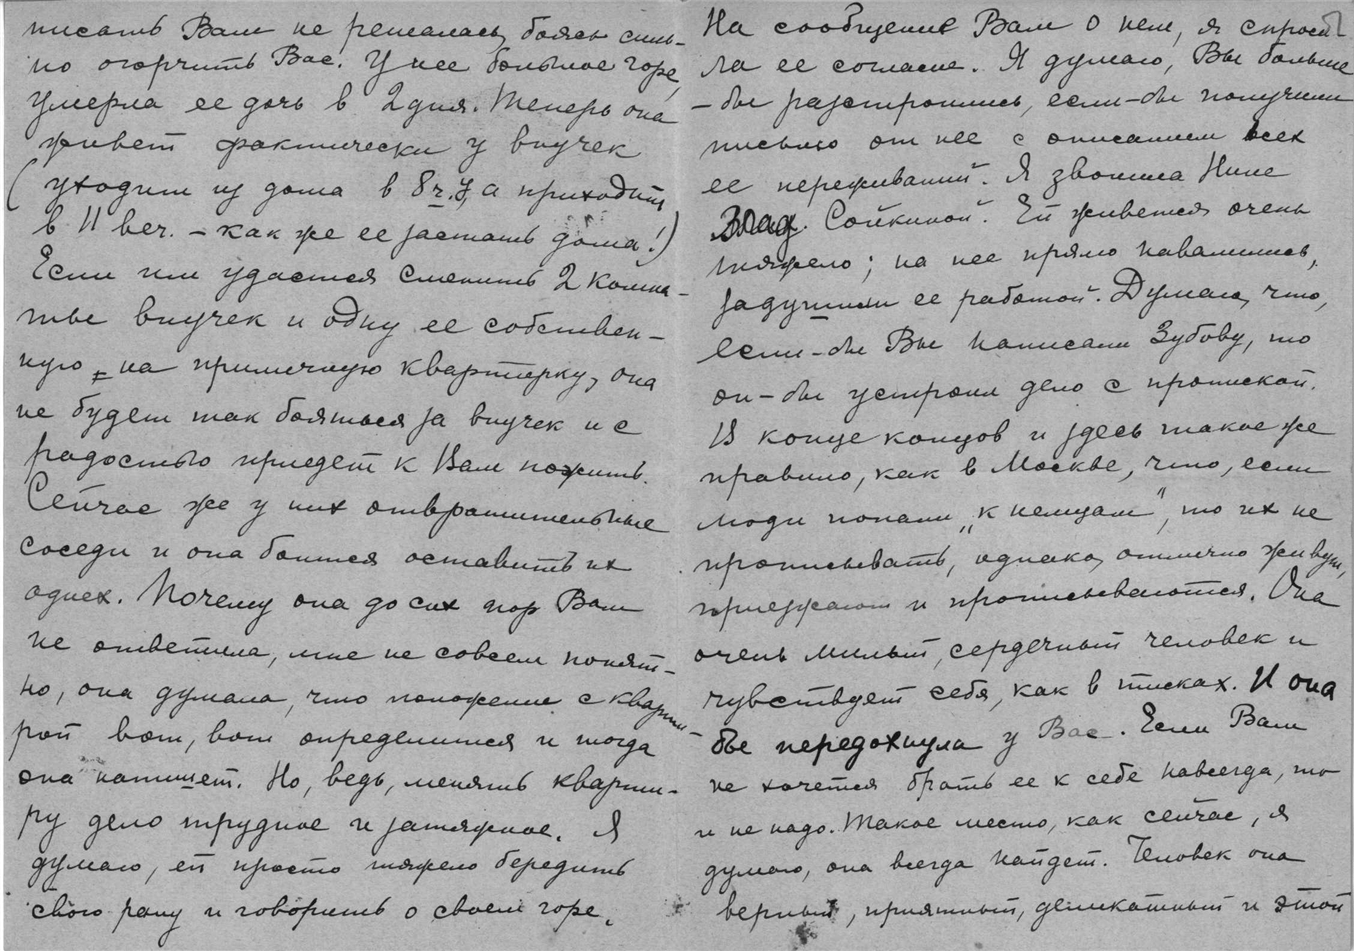 писать Вам не решалась, боясь силь-
но огорчить Вас. У нее большое горе,
умерла ее дочь в 2 дня. Теперь она
живет фактически у внучек
(уходит из дома в 8 ч. у, а приходит
в 11 веч. – как же ее застать дома!)
Если им удастся сменить 2 комна-
ты внучек и одну ее собствен-
ную – на приличную квартирку, она
не будет так бояться за внучек и с
радостью приедет к Вам пожить.
Сейчас же у них отвратительные
соседи и она боится оставить их
одних. Почему она до сих пор Вам
не ответила, мне не совсем понят-
но, она думала, что положение с кварти-
рой вот, вот определится и тогда
она напишет. Но, ведь, менять кварти-
ру дело трудное и затяжное. Я
думаю, ей просто тяжело бередить
свою рану и говорить о своем горе.
На сообщение Вам о нем, я спроси-
ла ее согласие. Я думаю, Вы больше
– бы расстроились, если-бы получили
письмо от нее с описанием всех
ее переживаний. Я звонила Нине
Влад. Сойкиной. Ей живется очень
тяжело; на нее прямо навалились,
задушили ее работой. Думаю, что,
если-бы Вы написали Зубову, то
он-бы устроил дело с пропиской.
В конце концов и здесь такое же
правило, как в Москве, что, если
люди попали „к немцам”, то их не
прописывать, однако, отлично живут,
приезжают и прописываются. Она
очень милый, сердечный человек и
чувствует себя, как в тисках. И она
бы передохнула у Вас. Если Вам
не хочется брать ее к себе навсегда, то
и не надо. Такое место, как сейчас, я
думаю, она всегда найдет. Человек она
верный, приятный, деликатный и этой